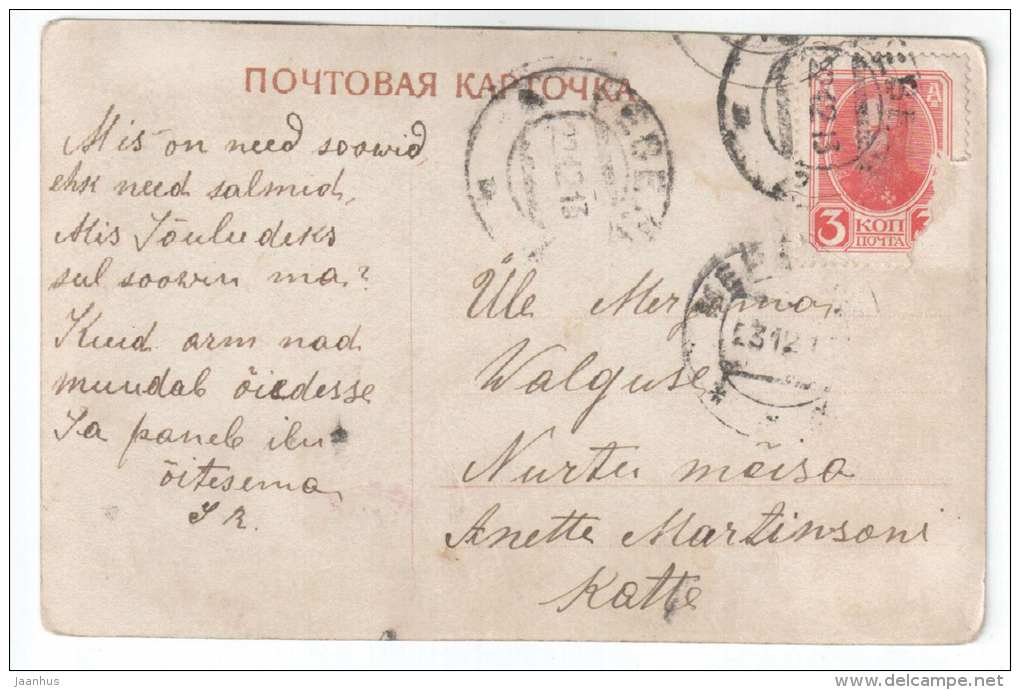 ПОЧТОВАЯ КАРТОЧКА
Mis on need soowid,
ehk need salmid,
Mis Jõuludeks
sul soowin ma?
Kuid arm nad
muudab õiedesse
Ja paneb ilu
õitesema
J R.
3 КОП
ПОЧТА
РЕВЕЛ
22.12.13
22.12.13
Üle Merjama
Walguse
Nurtu mõisa
Anette Martinsoni
Katte
jaanhus
www.delcampe.net